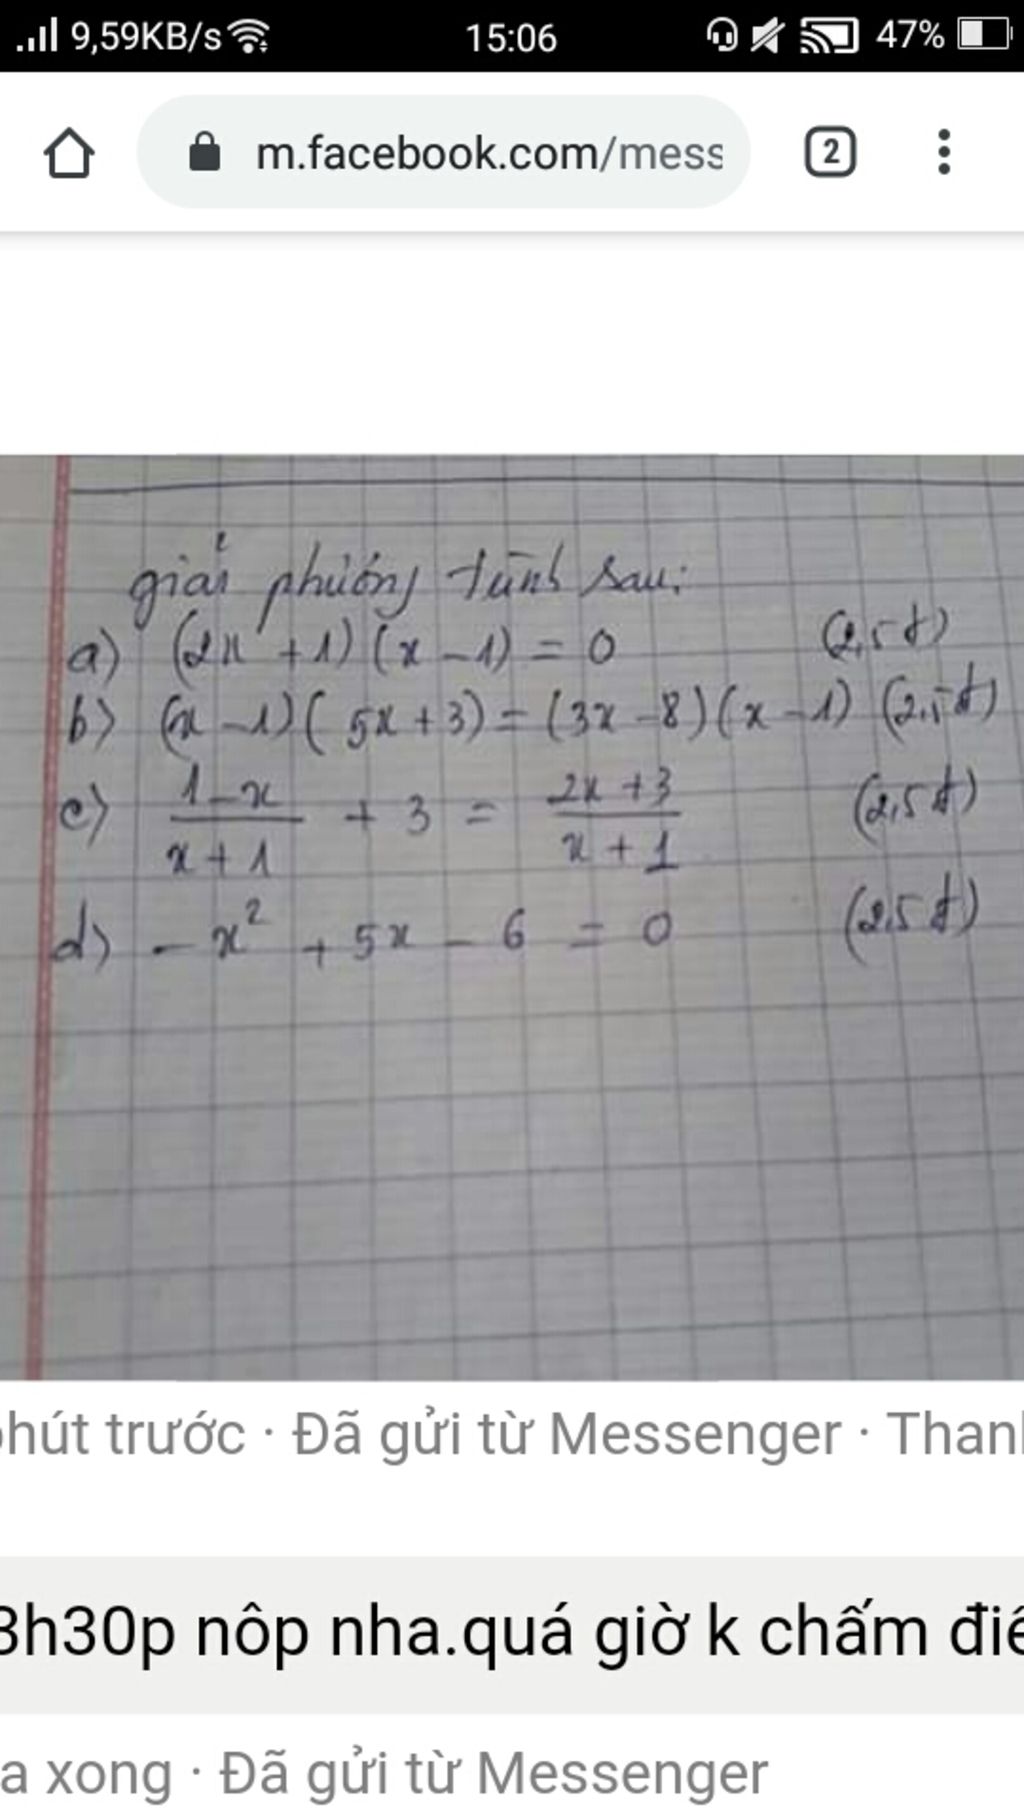 9,59KB/s 15:06 47%
m.facebook.com/mess 2
giải phương trình sau:
a) (2x + 1) (x - 1) = 0 (2,5đ)
b) (x - 1) ( 5x + 3) = (3x - 8) (x - 1) (2,5đ)
c) 1 - x / x + 1 + 3 = 2x + 3 / x + 1 (2,5đ)
d) - x² + 5x - 6 = 0 (2,5đ)
phút trước · Đã gửi từ Messenger · Thanh
3h30p nôp nha.quá giờ k chấm điể
a xong · Đã gửi từ Messenger